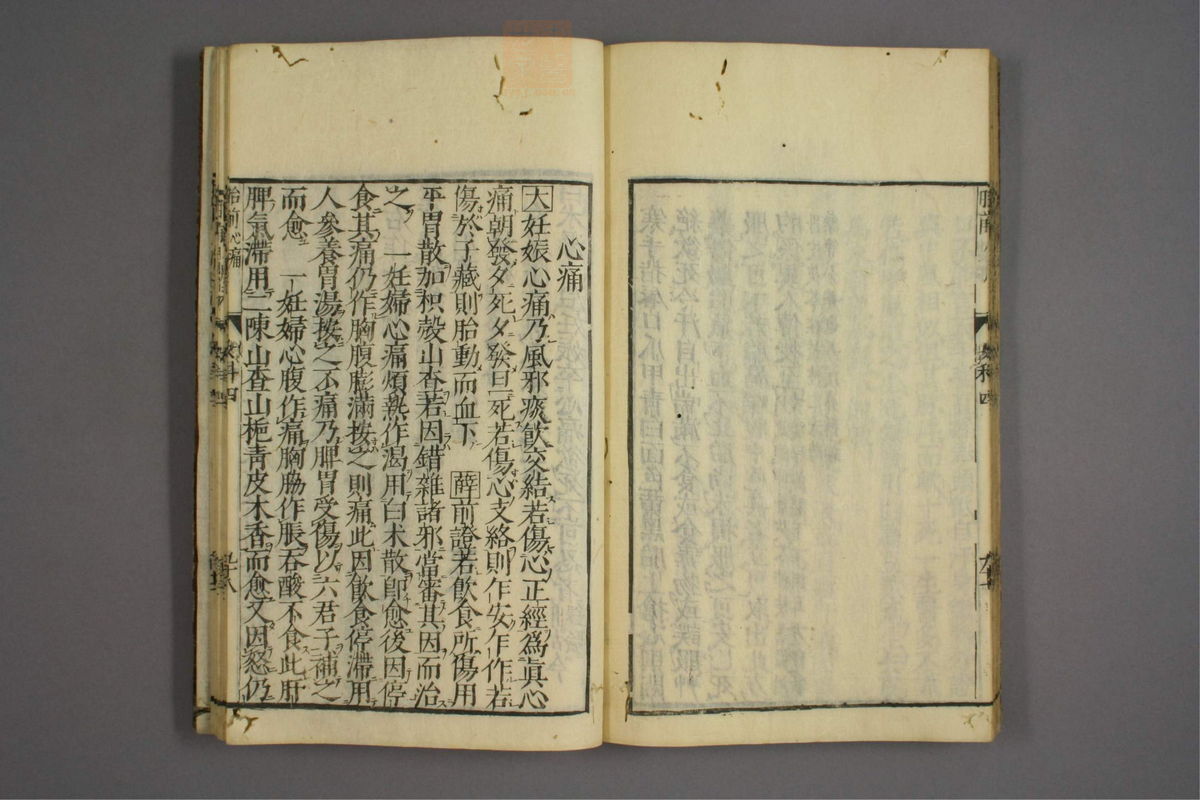 心痛
大妊娠心痛乃風邪痰飲交結若傷心正經爲眞心
痛朝發夕死夕發旦死若傷心支絡則作安乍作若
傷於子藏則胎動而血下 薛前證若飲食所傷用
平胃散加枳殼山查若因錯雜諸邪當審其因而治
之 一妊婦心痛煩熱作渴用白朮散卽愈後因停
食其痛仍作胸腹膨滿按之則痛此因飲食停滯用
人參養胃湯按之不痛乃脾胃受傷以六君子補之
而愈 一妊婦心腹作痛胸脇作脹吞酸不食此肝
脾氣滯用二陳山查山梔靑皮木香而愈又因怒仍
胎前心痛
女科四